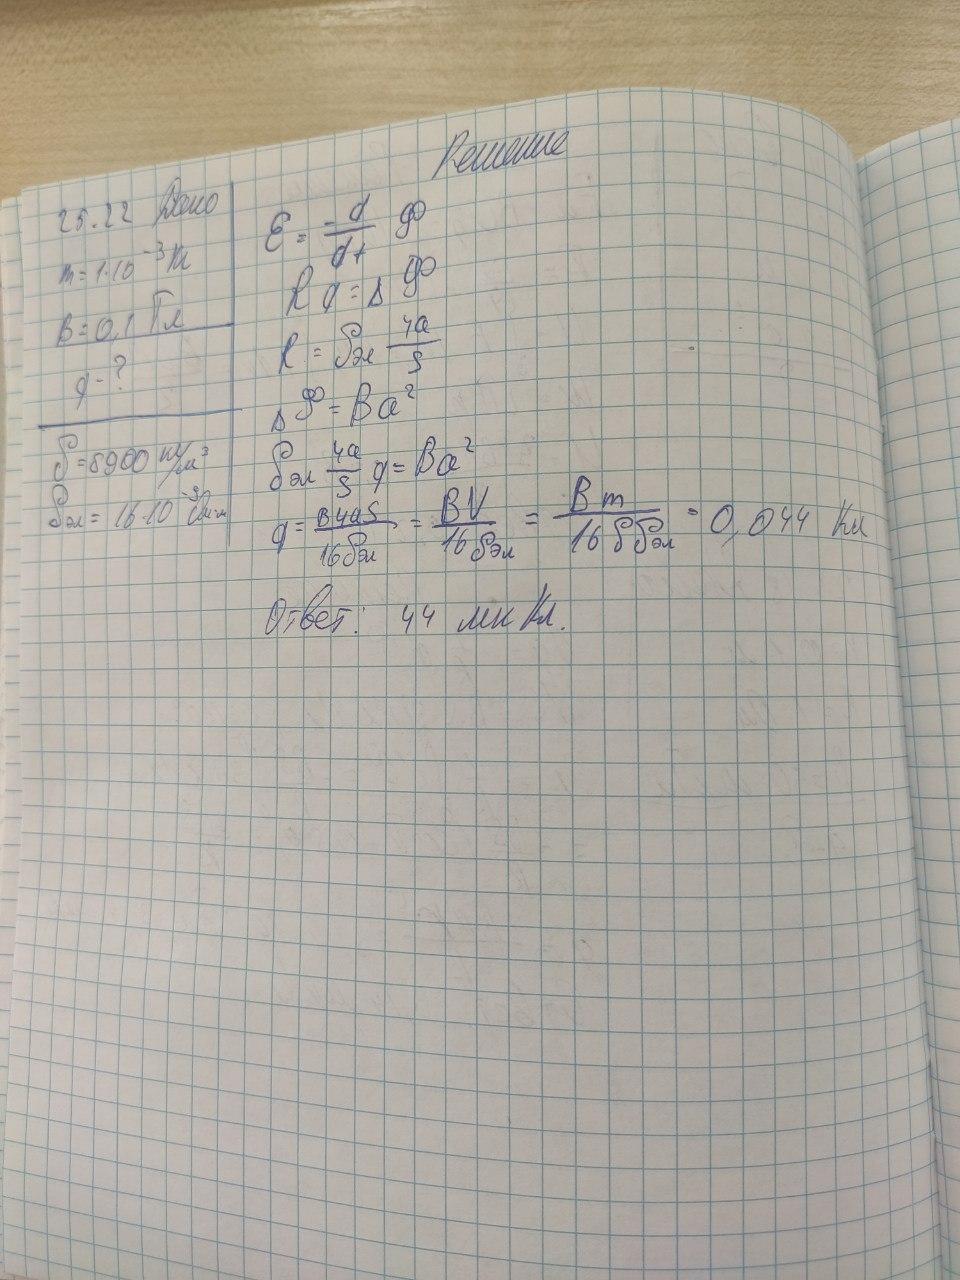 Решение
25.22 Дано
m = 1·10⁻³ кг
B = 0,1 Тл
q - ?
ρ = 8900 кг/м³
ρэл = 16·10⁻⁹ Ом·м
ε = -d/dt Φ
R q = Δ Φ
R = ρэл 4a/S
ΔΦ = Ba²
ρэл 4a/S q = Ba²
q = B4aS/16ρэл = BV/16ρэл = Bm/16ρρэл = 0,044 Кл
Ответ: 44 мк Кл.